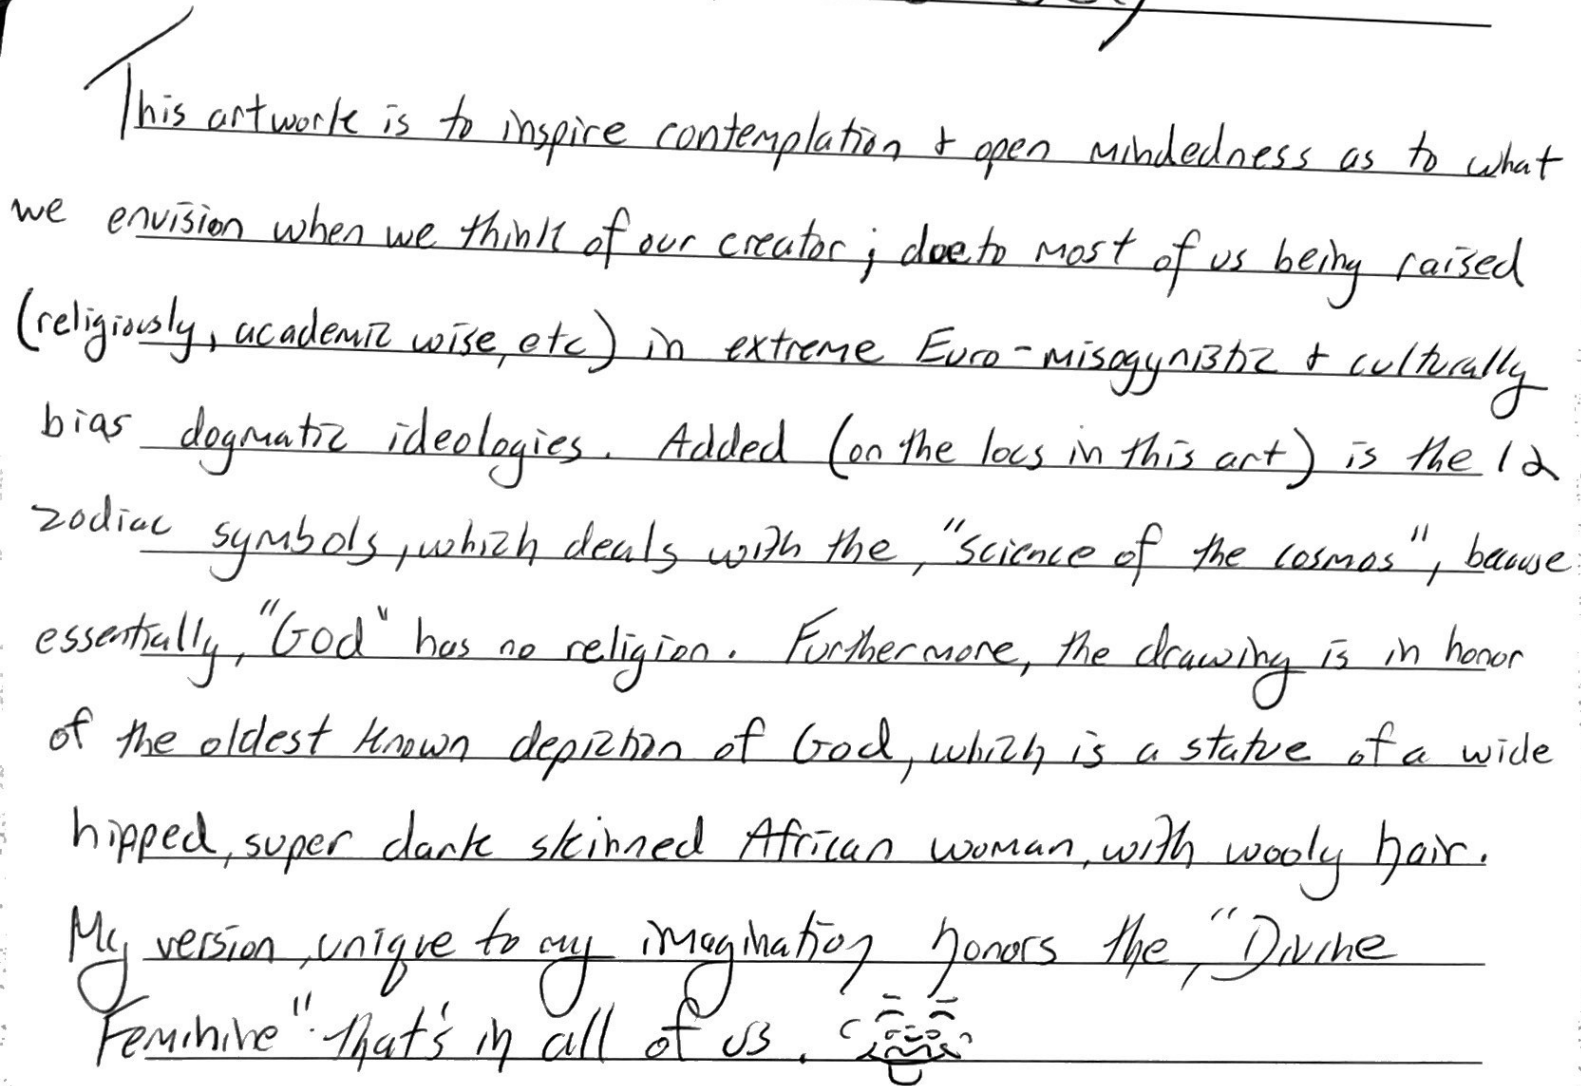 This artwork is to inspire contemplation & open mindedness as to what
we envision when we think of our creator; due to most of us being raised
(religiously, academic wise, etc) in extreme Euro-misogynistic & culturally
bias dogmatic ideologies. Added (on the locs in this art) is the 12
zodiac symbols, which deals with the, "science of the cosmos", because
essentially, "God" has no religion. Furthermore, the drawing is in honor
of the oldest known depiction of God, which is a statue of a wide
hipped, super dark skinned African woman, with wooly hair.
My version, unique to my imagination honors the, "Divine
Feminine" that's in all of us.